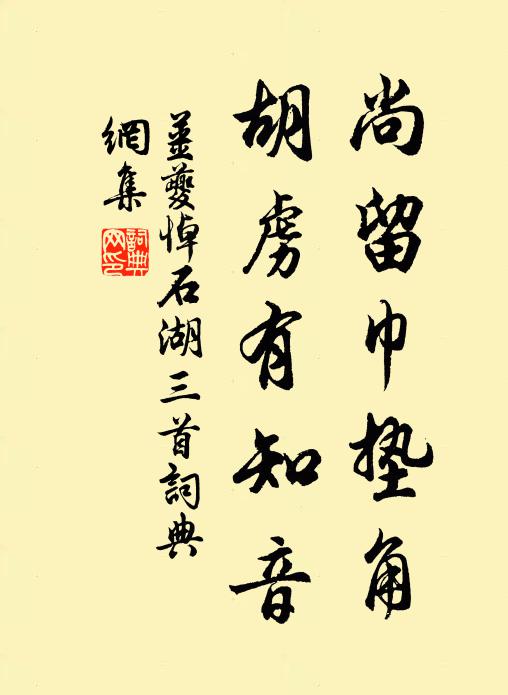 尚留巾墊角
胡虜有知音
姜夔悼石湖三首詞典
網集
詞典
網印